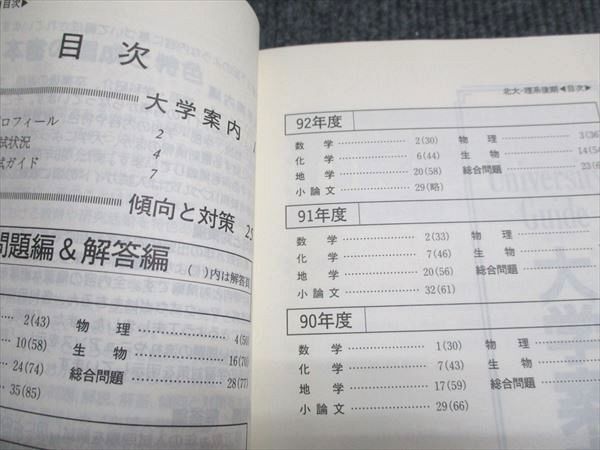 目次▶
目 次
大学案内
ロフィール 2
試況 4
試ガイド 7
傾向と対策 25
問題編&解答編
( )内は解答頁
2(43) 物 理 4(50)
10(58) 生 物 16(70)
24(74) 総合問題 28(77)
35(85)
北大-理系後期◀目次▶
92年度
数 学 2(30) 物 理 3(36)
化 学 6(44) 生 物 14(54
地 学 20(58) 総合問題 23(6
小論文 29(略)
91年度
数 学 2(33) 物 理
化 学 7(46) 生 物
地 学 20(56) 総合問題
小論文 32(61)
90年度
数 学 1(30) 物 理
化 学 7(43) 生 物
地 学 17(59) 総合問題
小論文 29(66)